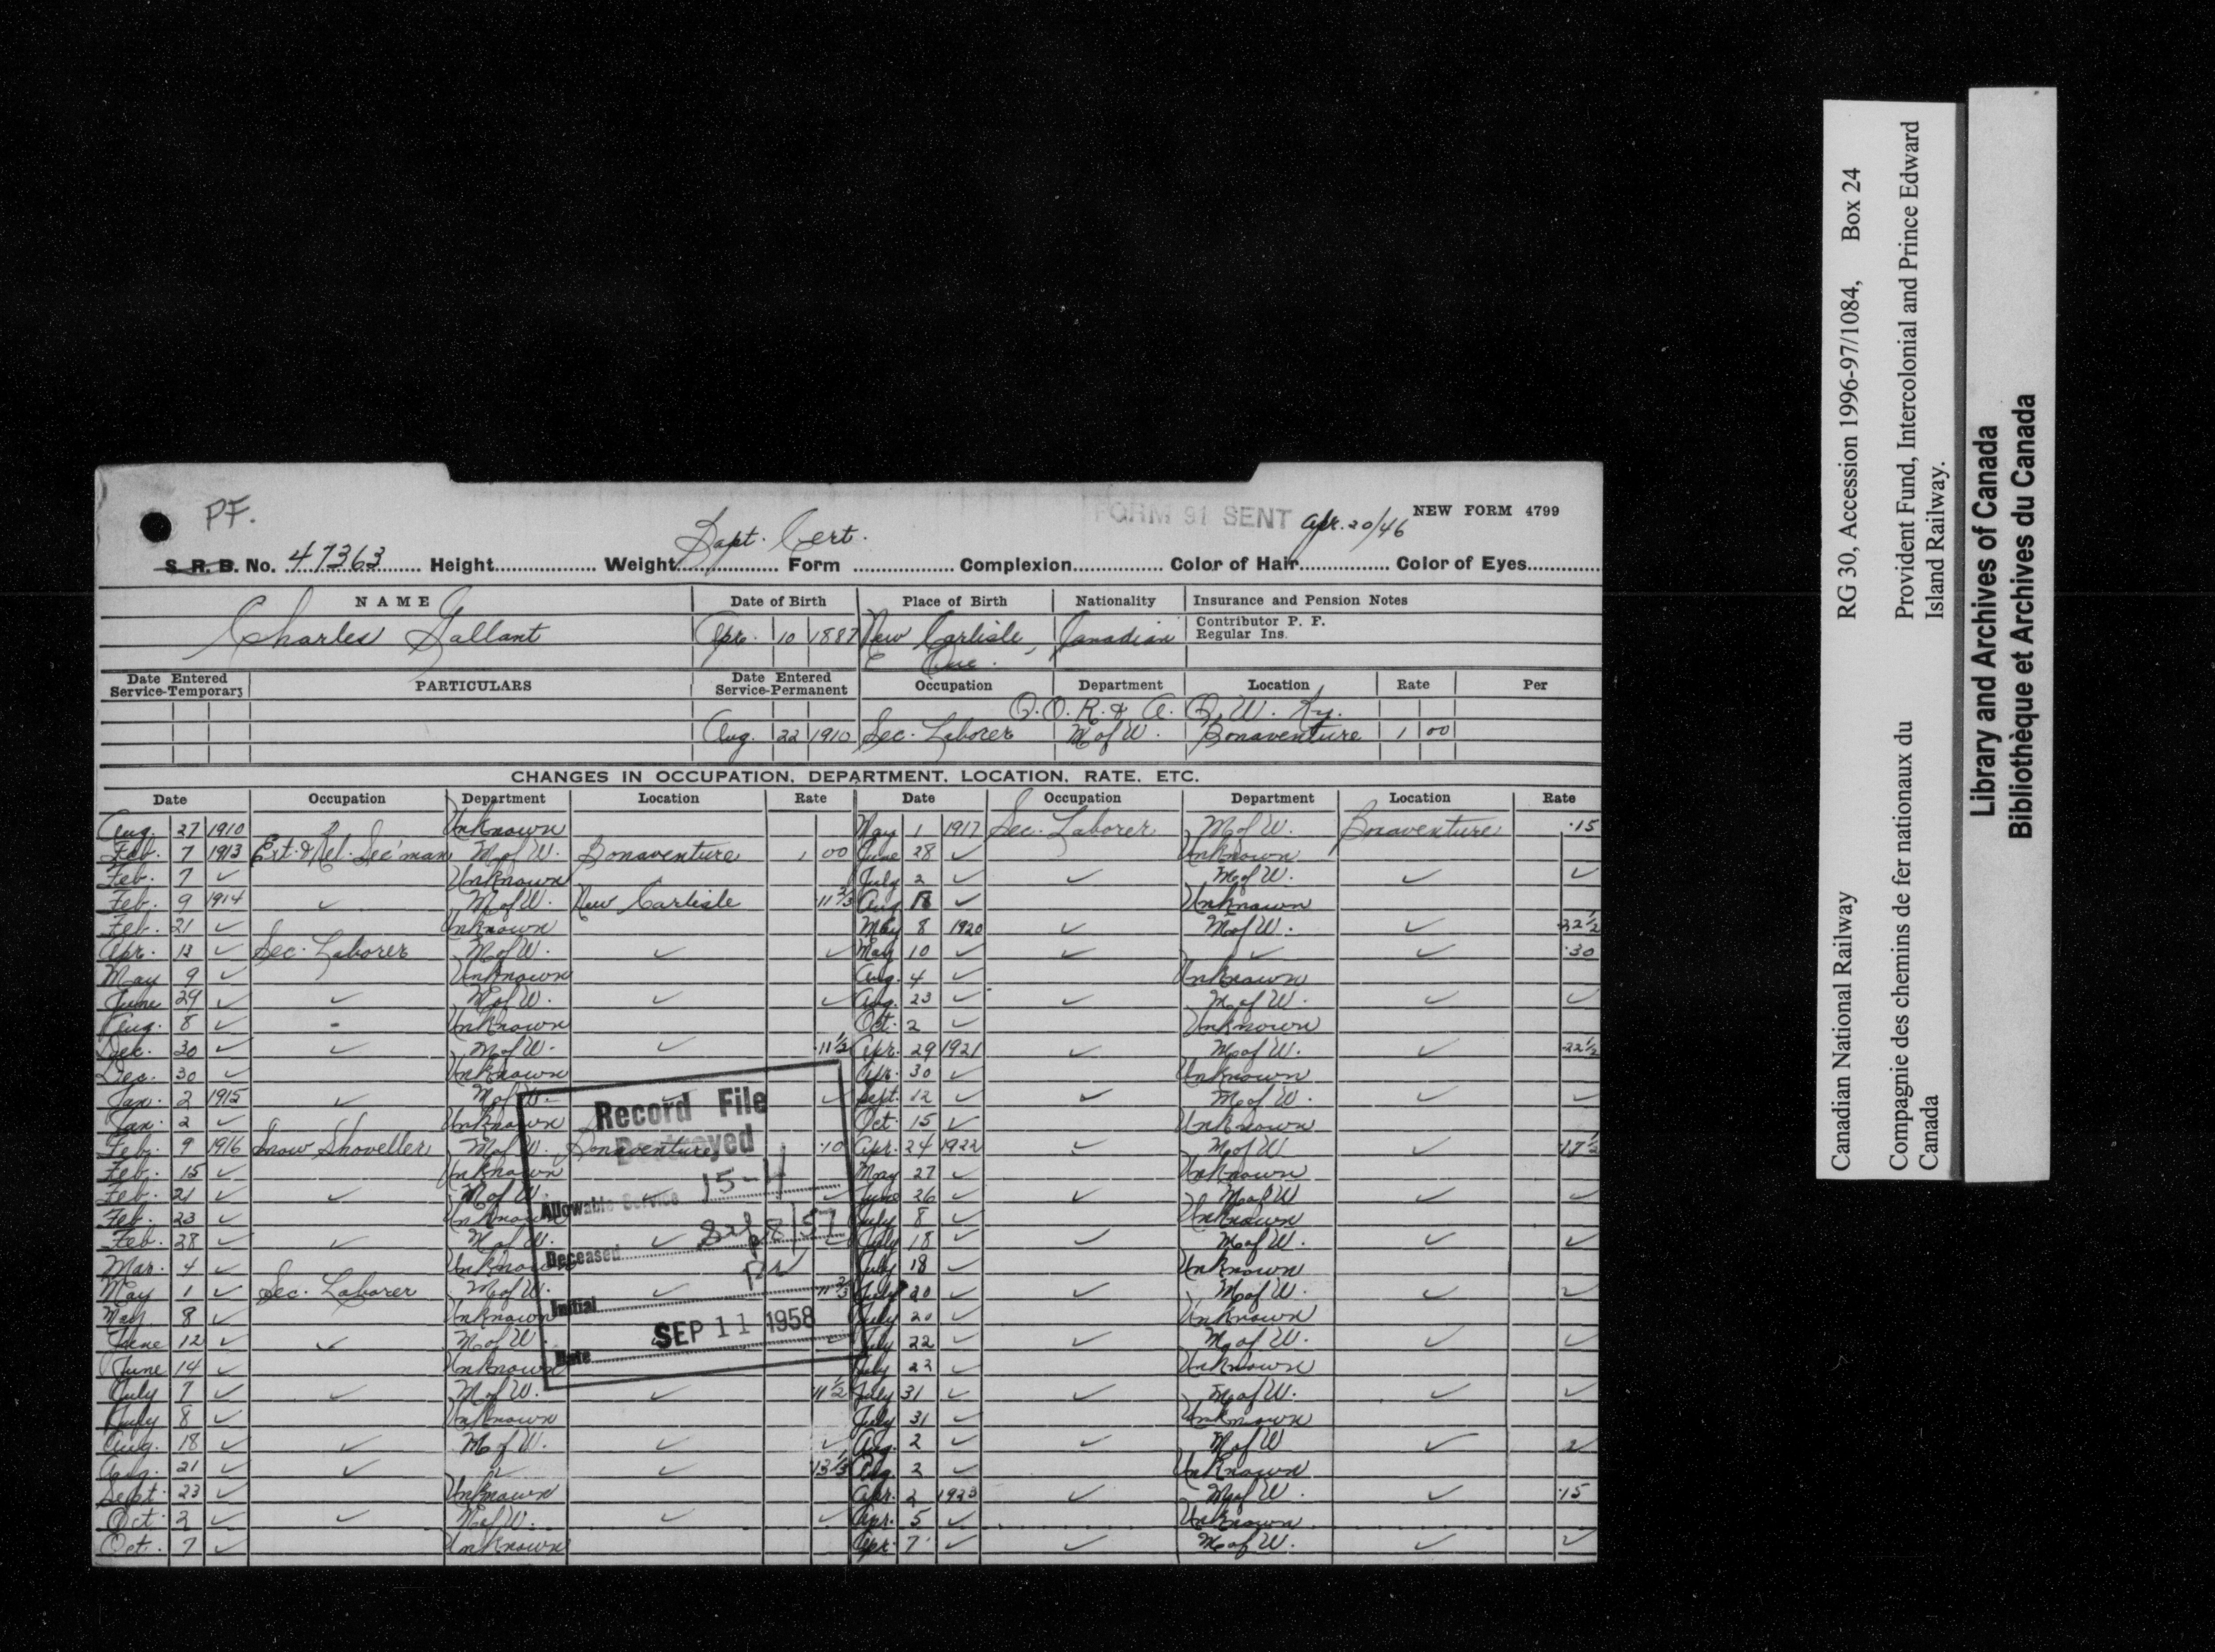 PF.
FORM 91 SENT Apr. 20/46 NEW FORM 4799
Bapt. Cert.
S. R. B. No. 47363 Height Weight Form Complexion Color of Hair Color of Eyes
NAME Date of Birth Place of Birth Nationality Insurance and Pension Notes
Charles Gallant Apr. 10 1887 New Carlisle, Que. Canadian Contributor P. F.
Regular Ins.
Date Entered Service-Temporary PARTICULARS Date Entered Service-Permanent Occupation Department Location Rate Per
Q.O.R. & A. Q. W. Ry.
Aug. 22 1910 Sec. Laborer M of W. Bonaventure 1 00
CHANGES IN OCCUPATION, DEPARTMENT, LOCATION, RATE, ETC.
Date Occupation Department Location Rate Date Occupation Department Location Rate
Aug. 27 1910 Unknown May 1 1917 Sec. Laborer M of W. Bonaventure .15
Feb. 7 1913 Ext. & Rel. Sec'man M of W. Bonaventure 1 00 June 28 ✓ Unknown
Feb. 7 ✓ Unknown July 2 ✓ ✓ M of W. ✓ ✓
Feb. 9 1914 ✓ M of W. New Carlisle .11 2/3 Aug 18 ✓ Unknown
Feb. 21 ✓ Unknown May 8 1920 ✓ M of W. ✓ .22 1/2
Apr. 13 ✓ Sec. Laborer M of W. ✓ ✓ May 10 ✓ ✓ ✓ ✓ .30
May 9 ✓ Unknown Aug. 4 ✓ Unknown
June 29 ✓ ✓ M of W. ✓ ✓ Aug. 23 ✓ ✓ M of W. ✓ ✓
Aug. 8 ✓ - Unknown Oct. 2 ✓ Unknown
Dec. 30 ✓ ✓ M of W. ✓ .11 1/2 Apr. 29 1921 ✓ M of W. ✓ .22 1/2
Dec. 30 ✓ Unknown Apr. 30 ✓ Unknown
Jan. 2 1915 ✓ M of W. ✓ ✓ Sept. 12 ✓ ✓ M of W. ✓ ✓
Jan. 2 ✓ Unknown Oct. 15 ✓ Unknown
Feb. 9 1916 Snow Shoveller M of W. Bonaventure .10 Apr. 24 1922 ✓ M of W ✓ .17 1/2
Feb. 15 ✓ Unknown May 27 ✓ Unknown
Feb. 21 ✓ ✓ M of W. ✓ ✓ June 26 ✓ ✓ M of W ✓ ✓
Feb. 23 ✓ Unknown July 8 ✓ Unknown
Feb. 28 ✓ ✓ M of W. ✓ ✓ July 18 ✓ ✓ M of W. ✓ ✓
Mar. 4 ✓ Unknown July 18 ✓ Unknown
May 1 ✓ Sec. Laborer M of W. ✓ .11 2/3 July 20 ✓ ✓ M of W. ✓ ✓
May 8 ✓ Unknown July 20 ✓ Unknown
June 12 ✓ ✓ M of W. ✓ ✓ July 22 ✓ ✓ M of W. ✓ ✓
June 14 ✓ Unknown July 23 ✓ Unknown
July 7 ✓ ✓ M of W. ✓ 11 1/2 July 31 ✓ ✓ M of W. ✓ ✓
July 8 ✓ Unknown July 31 ✓ Unknown
Aug. 18 ✓ ✓ M of W. ✓ ✓ Aug. 2 ✓ ✓ M of W ✓ ✓
Aug. 21 ✓ ✓ ✓ ✓ 13 1/3 Aug. 2 ✓ Unknown
Sept. 23 ✓ Unknown Apr. 2 1923 ✓ M of W. ✓ .15
Oct. 2 ✓ ✓ M of W. ✓ ✓ Apr. 5 ✓ Unknown
Oct. 7 ✓ Unknown Apr. 7 ✓ ✓ M of W. ✓ ✓
Record File
Destroyed
Allowable Service 15-4
Deceased
Initial
SEP 11 1958
Date
Canadian National Railway RG 30, Accession 1996-97/1084, Box 24
Compagnie des chemins de fer nationaux du Canada Provident Fund, Intercolonial and Prince Edward Island Railway.
Library and Archives of Canada
Bibliothèque et Archives du Canada